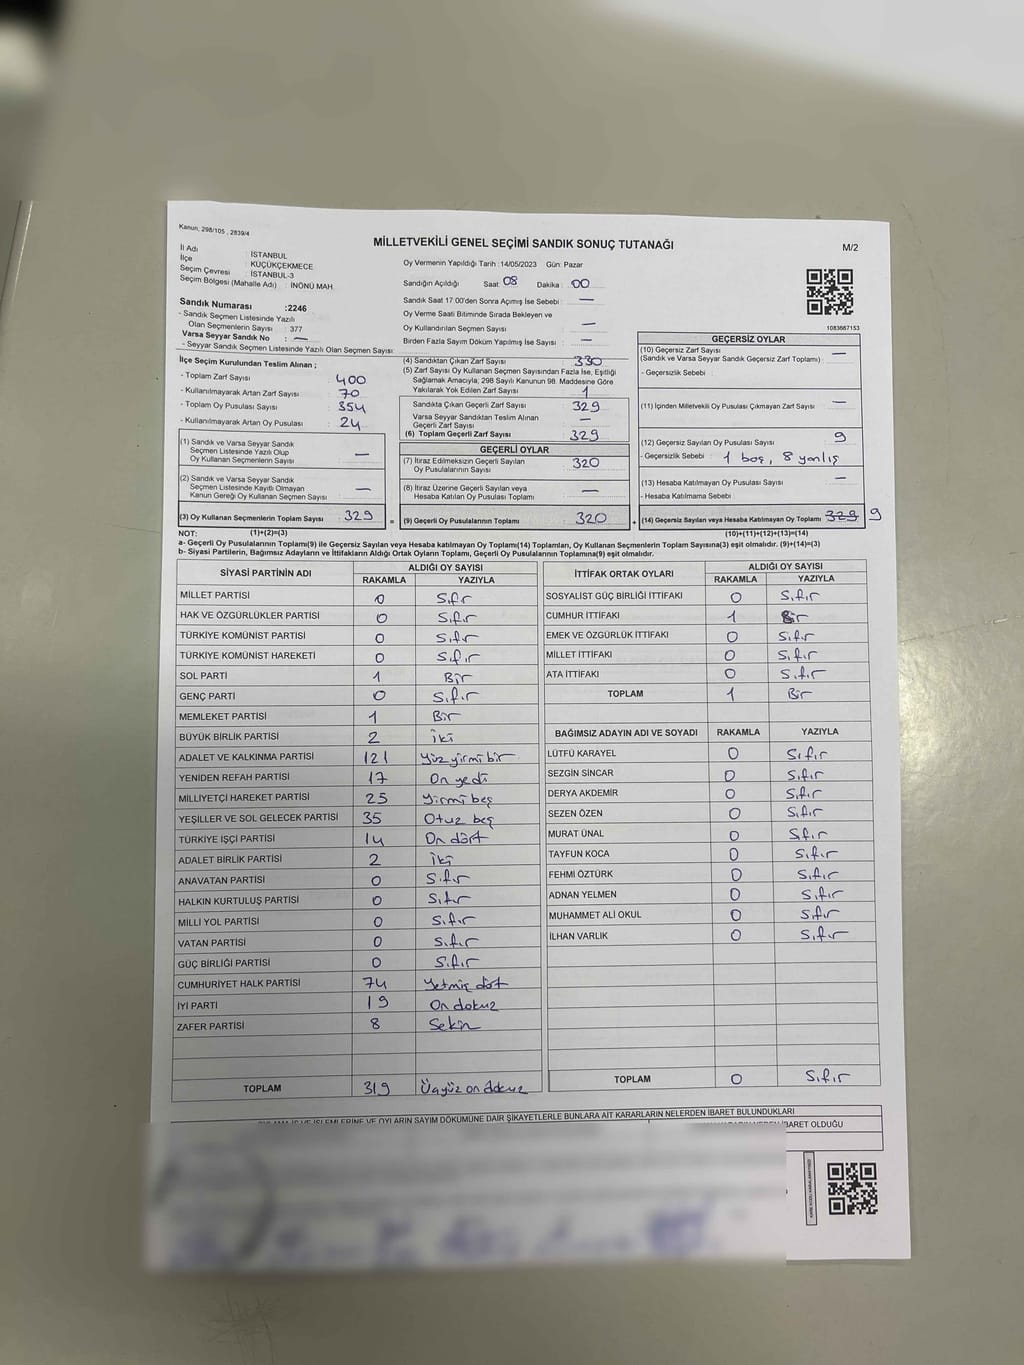 Kanun, 298/105 , 2839/4
MİLLETVEKİLİ GENEL SEÇİMİ SANDIK SONUÇ TUTANAĞI
M/2
İl Adı : İSTANBUL
İlçe : KÜÇÜKÇEKMECE
Seçim Çevresi : İSTANBUL-3
Seçim Bölgesi (Mahalle Adı) : İNÖNÜ MAH.
Sandık Numarası :2246
- Sandık Seçmen Listesinde Yazılı
Olan Seçmenlerin Sayısı : 377
Varsa Seyyar Sandık No : —
- Seyyar Sandık Seçmen Listesinde Yazılı Olan Seçmen Sayısı:
Oy Vermenin Yapıldığı Tarih :14/05/2023 Gün: Pazar
Sandığın Açıldığı Saat: 08 Dakika : 00
Sandık Saat 17.00'den Sonra Açılmış İse Sebebi : —
Oy Verme Saati Bitiminde Sırada Bekleyen ve
Oy Kullandırılan Seçmen Sayısı : —
Birden Fazla Sayım Döküm Yapılmış İse Sayısı : —
1083667153
İlçe Seçim Kurulundan Teslim Alınan ;
- Toplam Zarf Sayısı : 400
- Kullanılmayarak Artan Zarf Sayısı : 70
- Toplam Oy Pusulası Sayısı : 354
- Kullanılmayarak Artan Oy Pusulası : 24
(1) Sandık ve Varsa Seyyar Sandık
Seçmen Listesinde Yazılı Olup
Oy Kullanan Seçmenlerin Sayısı —
(2) Sandık ve Varsa Seyyar Sandık
Seçmen Listesinde Kayıtlı Olmayan
Kanun Gereği Oy Kullanan Seçmen Sayısı —
(3) Oy Kullanan Seçmenlerin Toplam Sayısı 329
(4) Sandıktan Çıkan Zarf Sayısı : 330
(5) Zarf Sayısı Oy Kullanan Seçmen Sayısından Fazla İse, Eşitliği
Sağlamak Amacıyla, 298 Sayılı Kanunun 98. Maddesine Göre
Yakılarak Yok Edilen Zarf Sayısı : 1
Sandıkta Çıkan Geçerli Zarf Sayısı 329
Varsa Seyyar Sandıktan Teslim Alınan
Geçerli Zarf Sayısı —
(6) Toplam Geçerli Zarf Sayısı : 329
GEÇERLİ OYLAR
(7) İtiraz Edilmeksizin Geçerli Sayılan
Oy Pusulalarının Sayısı 320
(8) İtiraz Üzerine Geçerli Sayılan veya
Hesaba Katılan Oy Pusulası Toplamı —
= (9) Geçerli Oy Pusulalarının Toplamı 320
GEÇERSİZ OYLAR
(10) Geçersiz Zarf Sayısı —
(Sandık ve Varsa Seyyar Sandık Geçersiz Zarf Toplamı) :
- Geçersizlik Sebebi :
(11) İçinden Milletvekili Oy Pusulası Çıkmayan Zarf Sayısı : —
(12) Geçersiz Sayılan Oy Pusulası Sayısı : 9
- Geçersizlik Sebebi : 1 boş, 8 yanlış
(13) Hesaba Katılmayan Oy Pusulası Sayısı : —
- Hesaba Katılmama Sebebi :
+ (14) Geçersiz Sayılan veya Hesaba Katılmayan Oy Toplamı 329 9
NOT: (1)+(2)=(3) (10)+(11)+(12)+(13)=(14)
a- Geçerli Oy Pusulalarının Toplamı(9) ile Geçersiz Sayılan veya Hesaba Katılmayan Oy Toplamı(14) Toplamları, Oy Kullanan Seçmenlerin Toplam Sayısına(3) eşit olmalıdır. (9)+(14)=(3)
b- Siyasi Partilerin, Bağımsız Adayların ve İttifakların Aldığı Ortak Oyların Toplamı, Geçerli Oy Pusulalarının Toplamına(9) eşit olmalıdır.
SİYASİ PARTİNİN ADI ALDIĞI OY SAYISI
RAKAMLA YAZIYLA
MİLLET PARTİSİ 0 Sıfır
HAK VE ÖZGÜRLÜKLER PARTİSİ 0 Sıfır
TÜRKİYE KOMÜNİST PARTİSİ 0 Sıfır
TÜRKİYE KOMÜNİST HAREKETİ 0 Sıfır
SOL PARTİ 1 Bir
GENÇ PARTİ 0 Sıfır
MEMLEKET PARTİSİ 1 Bir
BÜYÜK BİRLİK PARTİSİ 2 İki
ADALET VE KALKINMA PARTİSİ 121 Yüz yirmi bir
YENİDEN REFAH PARTİSİ 17 On yedi
MİLLİYETÇİ HAREKET PARTİSİ 25 Yirmi beş
YEŞİLLER VE SOL GELECEK PARTİSİ 35 Otuz beş
TÜRKİYE İŞÇİ PARTİSİ 14 On dört
ADALET BİRLİK PARTİSİ 2 İki
ANAVATAN PARTİSİ 0 Sıfır
HALKIN KURTULUŞ PARTİSİ 0 Sıfır
MİLLİ YOL PARTİSİ 0 Sıfır
VATAN PARTİSİ 0 Sıfır
GÜÇ BİRLİĞİ PARTİSİ 0 Sıfır
CUMHURİYET HALK PARTİSİ 74 Yetmiş dört
İYİ PARTİ 19 On dokuz
ZAFER PARTİSİ 8 Sekiz
TOPLAM 319 Üçyüz on dokuz
İTTİFAK ORTAK OYLARI ALDIĞI OY SAYISI
RAKAMLA YAZIYLA
SOSYALİST GÜÇ BİRLİĞİ İTTİFAKI 0 Sıfır
CUMHUR İTTİFAKI 1 Bir
EMEK VE ÖZGÜRLÜK İTTİFAKI 0 Sıfır
MİLLET İTTİFAKI 0 Sıfır
ATA İTTİFAKI 0 Sıfır
TOPLAM 1 Bir
BAĞIMSIZ ADAYIN ADI VE SOYADI RAKAMLA YAZIYLA
LÜTFÜ KARAYEL 0 Sıfır
SEZGİN SİNCAR 0 Sıfır
DERYA AKDEMİR 0 Sıfır
SEZEN ÖZEN 0 Sıfır
MURAT ÜNAL 0 Sıfır
TAYFUN KOCA 0 Sıfır
FEHMİ ÖZTÜRK 0 Sıfır
ADNAN YELMEN 0 Sıfır
MUHAMMET ALİ OKUL 0 Sıfır
İLHAN VARLIK 0 Sıfır
TOPLAM 0 Sıfır
İŞLEMLERİNE VE OYLARIN SAYIM DÖKÜMÜNE DAİR ŞİKAYETLERLE BUNLARA AİT KARARLARIN NELERDEN İBARET BULUNDUKLARI
İBARET OLDUĞU